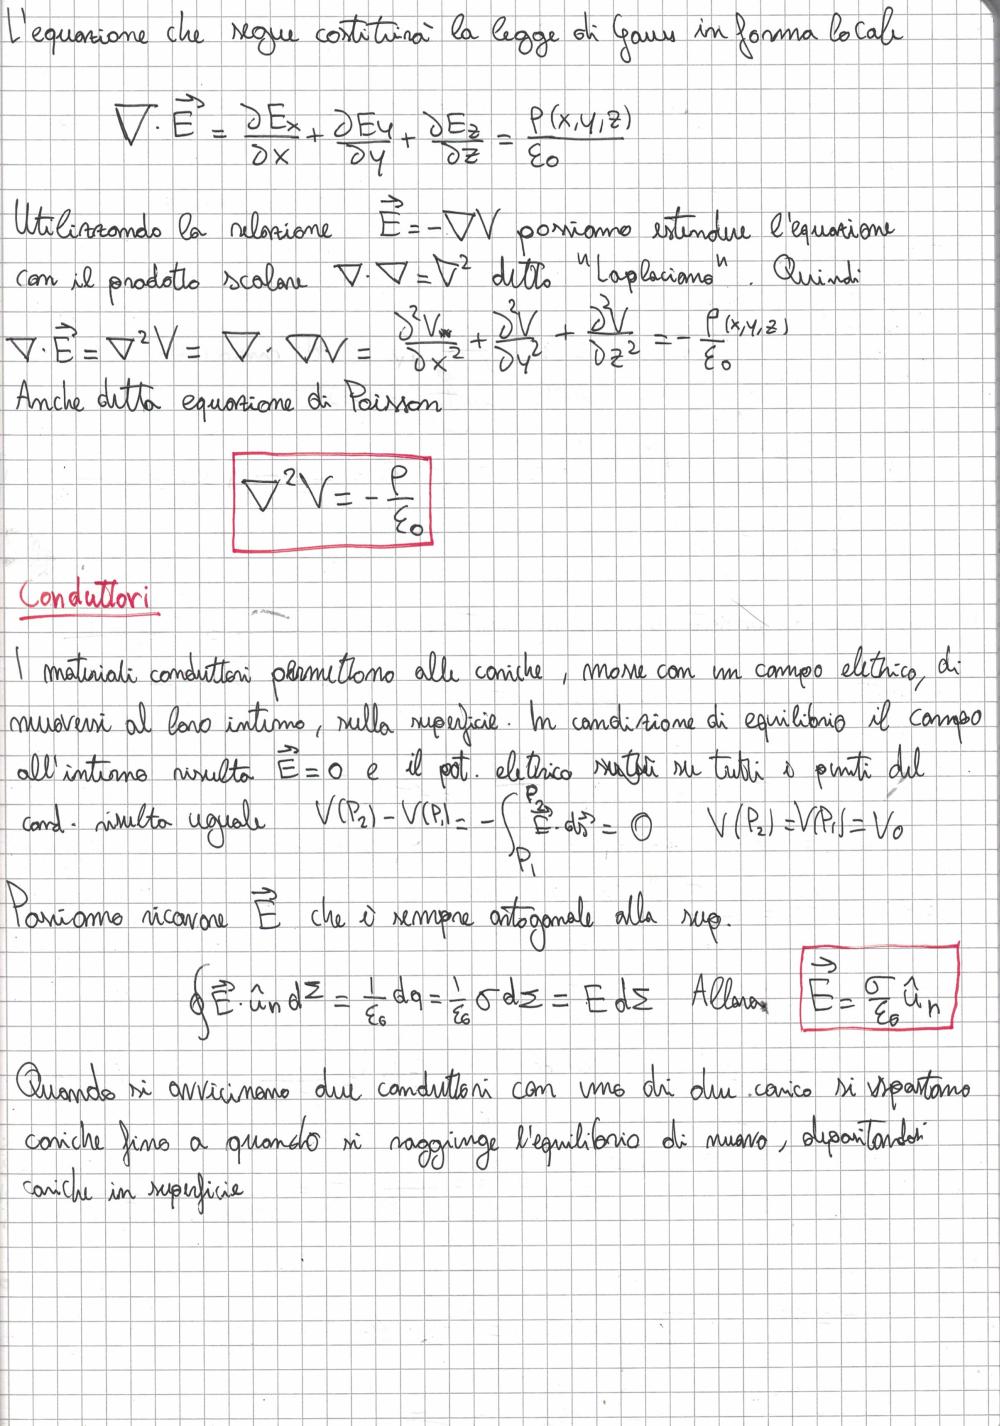 L'equazione che segue costituirà la legge di Gauss in forma locale
∇·E⃗ = ∂Ex/∂x + ∂Ey/∂y + ∂Ez/∂z = ρ(x,y,z)/ε0
Utilizzando la relazione E⃗ = -∇V possiamo estendere l'equazione
con il prodotto scalare ∇·∇ = ∇² detto "Laplaciano". Quindi
∇·E⃗ = ∇²V = ∇·∇V = ∂²V/∂x² + ∂²V/∂y² + ∂²V/∂z² = -ρ(x,y,z)/ε0
Anche detta equazione di Poisson
∇²V = -ρ/ε0
Conduttori
I materiali conduttori permettono alle cariche, mosse con un campo elettrico, di
muoversi al loro interno, sulla superficie. In condizione di equilibrio il campo
all'interno risulta E⃗ = 0 e il pot. elettrico su tutti i punti del
cond. risulta uguale V(P2) - V(P1) = -∫_P1^P2 E⃗·ds⃗ = 0 V(P2) = V(P1) = V0
Possiamo ricavare E⃗ che è sempre ortogonale alla sup.
∮E⃗·ûn dΣ = 1/ε0 dq = 1/ε0 σ dΣ = E dΣ Allora E⃗ = σ/ε0 ûn
Quando si avvicinano due conduttori con uno dei due carico si spostano
cariche fino a quando si raggiunge l'equilibrio di nuovo, depositandosi
cariche in superficie